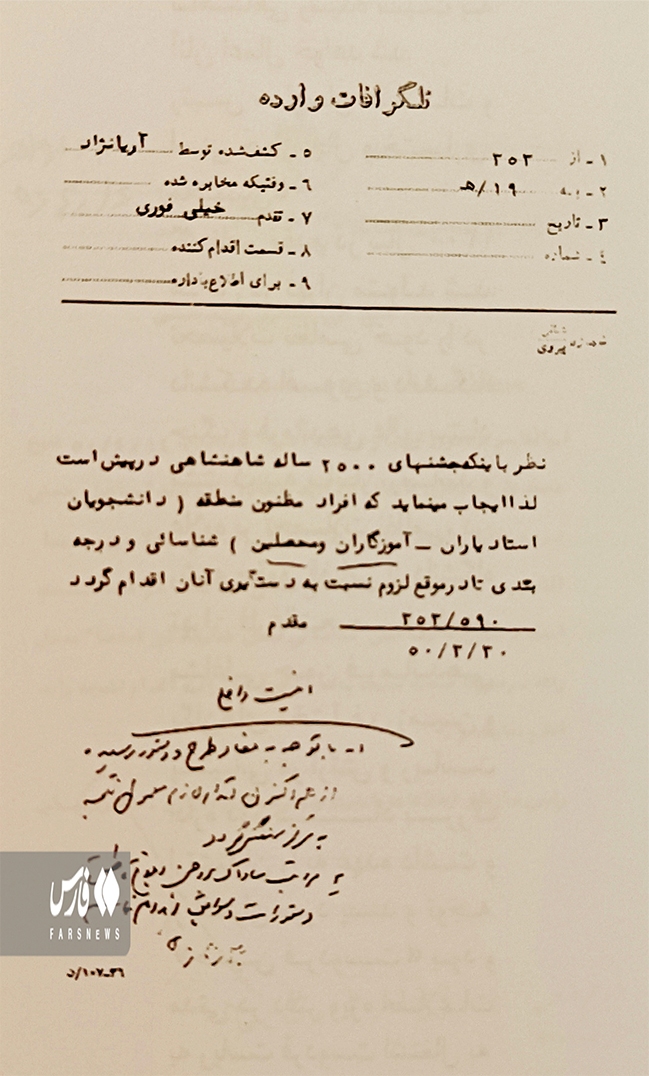 تلگرافات وارده
۱ـ از ۲۵۲
۲ـ به ۱۹/هـ
۳ـ تاریخ
۴ـ شماره
۵ـ کشف‌شده توسط آریانژاد
۶ـ وقتیکه مخابره شده
۷ـ تقدم خیلی فوری
۸ـ قسمت اقدام‌کننده
۹ـ برای اطلاع باداره
پیروی
نظر باینکه جشنهای ۲۵۰۰ ساله شاهنشاهی درپیش است
لذا ایجاب مینماید که افراد مظنون منطقه (دانشجویان
استادیاران ـ آموزگاران ومحصلین) شناسائی و درجه
بندی تا درموقع لزوم نسبت به دستگیری آنان اقدام گردد
۲۵۲/۵۹۰ مقدم
۵۰/۲/۲۰
امنیت داخلی
۱ـ با توجه به مفاد طرح و دستور رسیده
از هم اکنون اقدام لازم معمول نتیجه
به مرکز منعکس گردد
به مراتب ساواک
دستورات
د/۱۰۷-۳۶
فارس
FARSNEWS